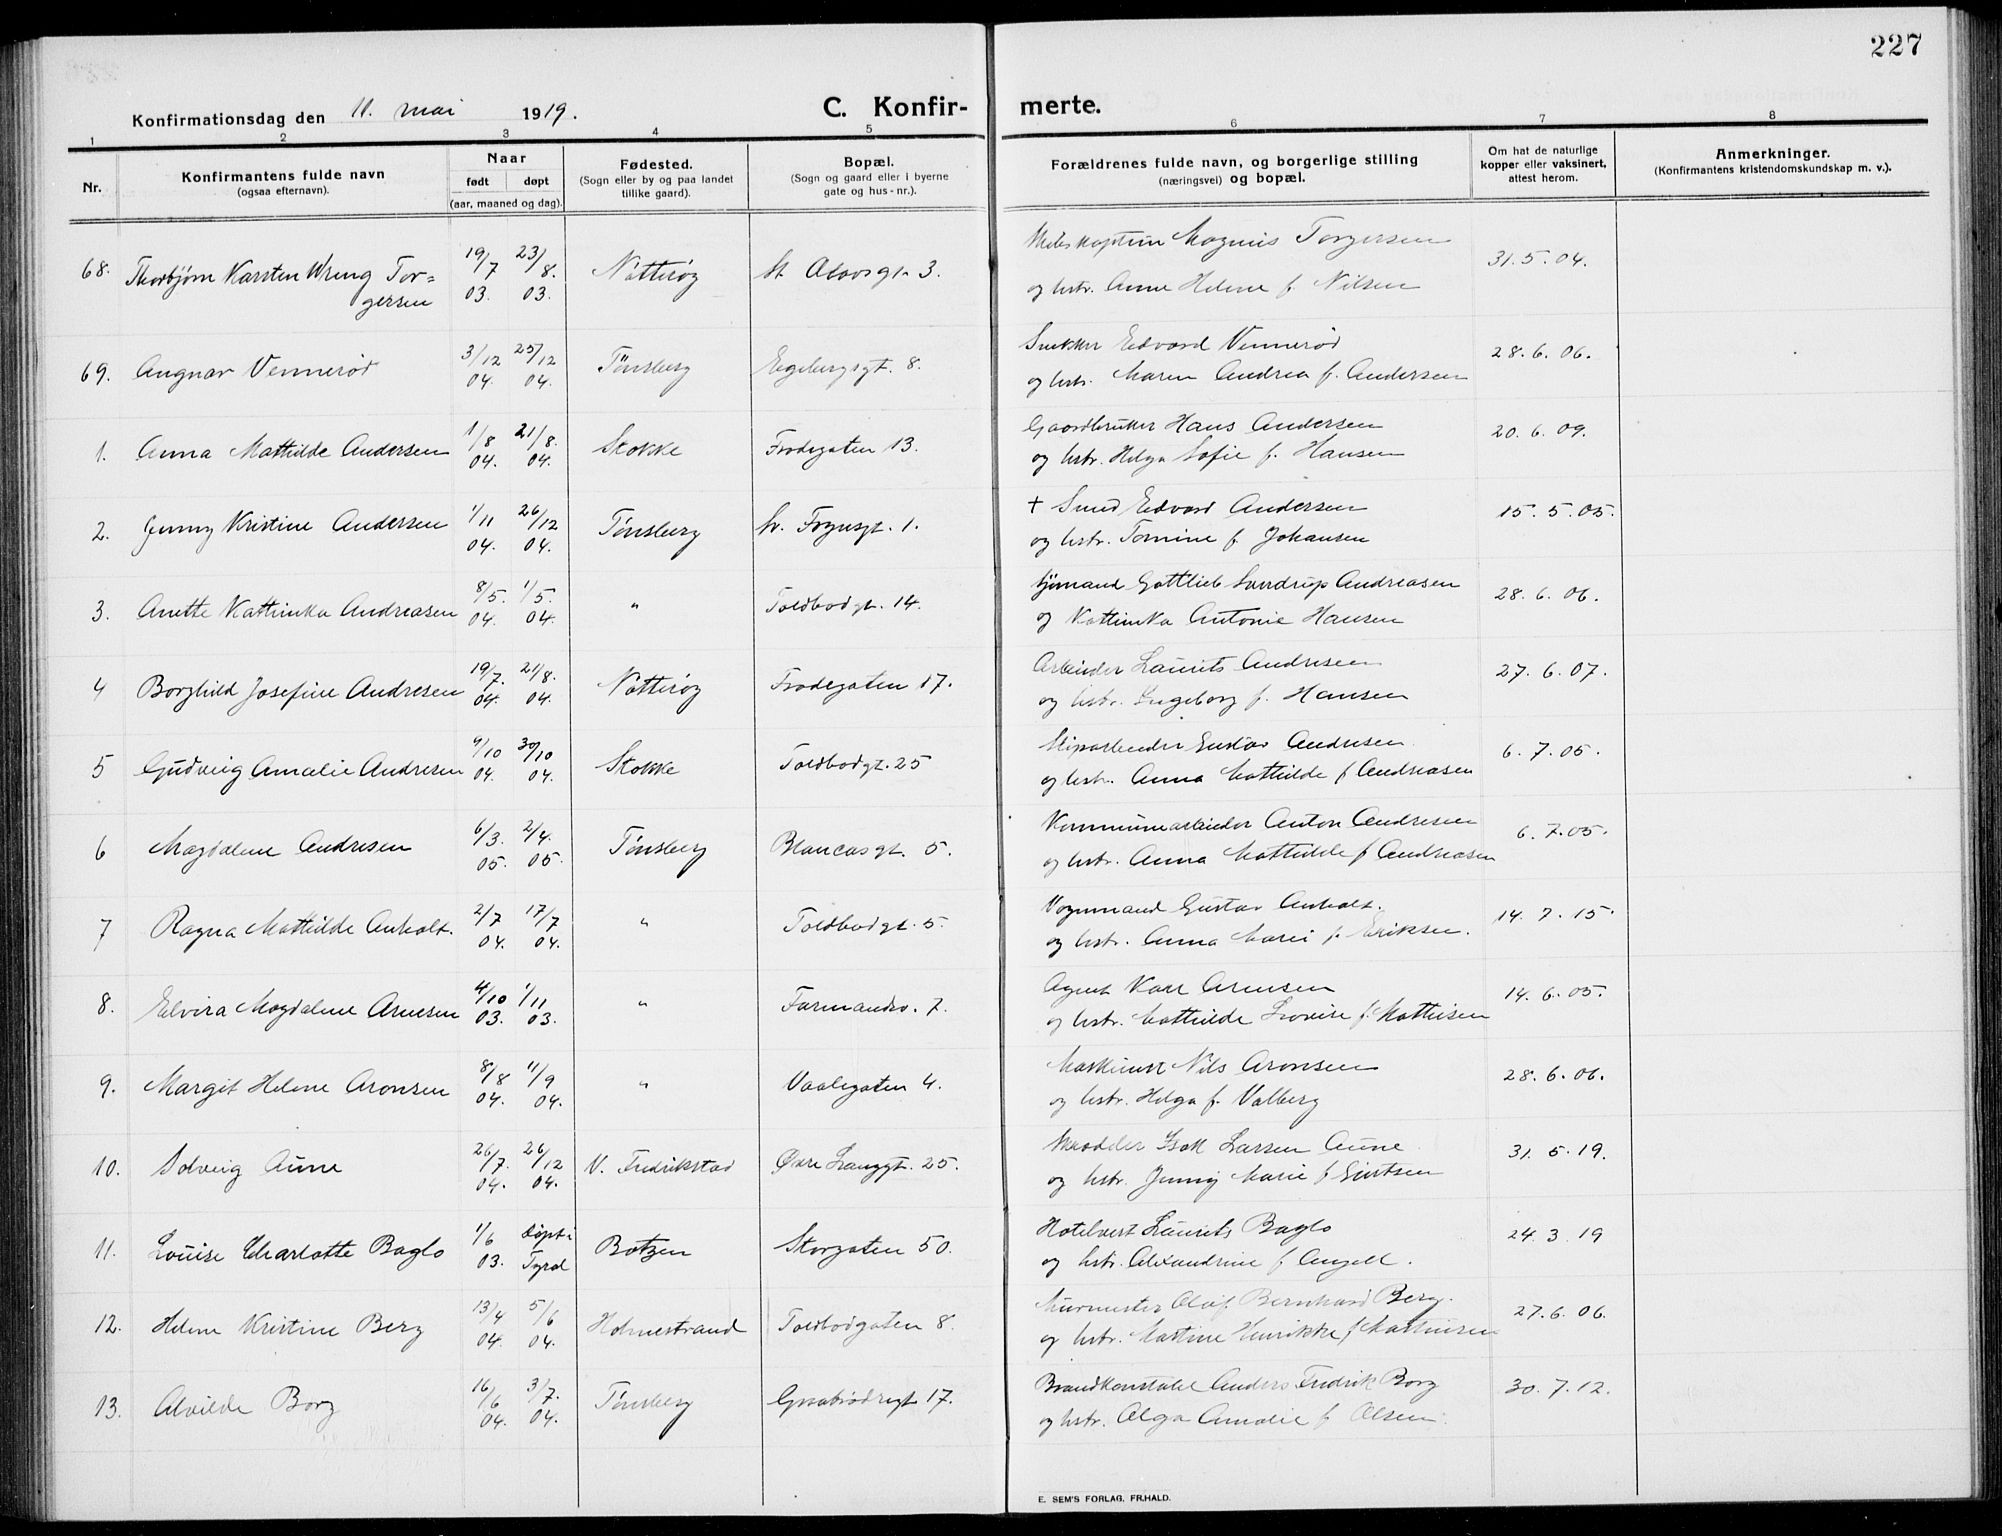 227
Konfirmationsdag den 11. mai 1919.
C. Konfir-
merte.
1 2 3 4 5 6 7 8
Nr.
Konfirmantens fulde navn
(ogsaa efternavn).
Naar
født døpt
(aar, maaned og dag).
Fødested.
(Sogn eller by og paa landet
tillike gaard).
Bopæl.
(Sogn og gaard eller i byerne
gate og hus-nr.).
Forældrenes fulde navn, og borgerlige stilling
(næringsvei) og bopæl.
Om hat de naturlige
kopper eller vaksinert,
attest herom.
Anmerkninger.
(Konfirmantens kristendomskundskap m. v.).
68. Thorbjørn Karsten Wreng Tor=
gersen
19/7 03. 23/8. 03.
Nøtterøy
St. Olavsgt. 3.
Magnus Torgersen
og hstr. Anne Helene f. Nilsen
31. 5. 04.
69. Augnar Vennerød
3/12 04. 25/12 04.
Tönsberg
Egebergsgt. 8.
Snekker Edvard Vennerød
og hstr. Maren Andrea f. Andersen
28. 6. 06.
1. Anna Mathilde Andersen
1/8 04. 21/8. 04.
Stokke
Frodegaten 13.
Gaardbruker Hans Andersen
og hstr. Helga Sofie f. Hansen
20. 6. 09.
2. Jenny Kristine Andersen
1/11 04. 26/12 04.
Tønsberg
Sv. Foynsgt. 1.
+ Smed Edvard Andersen
og hstr. Tomine f. Johansen
15. 5. 05.
3. Anette Kathinka Andreasen
8/5. 04. 1/5. 04.
"
Toldbodgt. 14.
Sjømand Gottlieb Sverdrup Andreasen
og Kathinka Antonie Hansen
28. 6. 06.
4 Borghild Josefine Andresen
19/7. 04. 21/8. 04.
Nøtterøy
Frodegaten 17.
Arbeider Laurits Andresen
og hstr. Ingeborg f. Hansen
27. 6. 07.
5 Gudveig Amalie Andresen
9/10 04. 30/10 04.
Stokke
Toldbodgt. 25
Sliparbeider Gustav Andresen
og hstr. Anna Mathilde f Andreasen
6. 7. 05.
6 Magdalene Andresen
6/3. 05. 2/4. 05.
Tønsberg
Blancasgt. 5.
Kommunearbeider Anton Andresen
og hstr. Anna Mathilde f Andreasen
6. 7. 05.
7 Ragna Mathilde Anholt.
2/7 04. 17/7 04.
"
Toldbodgt. 5.
Vognmand Gustav Anholt.
og hstr. Anna Marie f. Eriksen.
14. 7. 15.
8. Elvira Magdalene Arnesen
4/10 03. 1/11 03.
"
Farmandsv. 7.
Agent Karl Arnesen
og hstr. Mathilde Lovise f. Mathisen
14. 6. 05.
9. Margit Helene Aronsen
8/8 04. 11/9 04.
"
Vaalegaten 4.
Maskinist Nils Aronsen
og hstr. Helga f. Valberg
28. 6. 06.
10. Solveig Aune
26/7. 04. 26/12 04.
V. Fredrikstad
Øvre Langgt. 25.
Isak Larsen Aune
og hstr. Jenny Marie f Giertsen
31. 5. 19.
11. Louise Charlotte Baglo
1/6 03. døpt i Tyrol
Botzen
Storgaten 50.
Hotelvert Laurits Baglo
og hstr. Alexandrine f Angell.
24. 3. 19
12. Helene Kristine Berg
13/4 04. 5/6 04.
Holmestrand
Toldbodgaten 8.
Murmester Olaf Bernhard Berg.
og hstr. Martine Henrikke f Mathisen
27. 6. 06.
13. Alvilde Borg
16/6 04. 3/7. 04.
Tønsberg
Graabrødregt 17.
Brandkonstabel Anders Fredrik Borg
og hstr. Olga Amalie f Olsen.
30. 7. 12.
E. SEM'S FORLAG. FR.HALD.